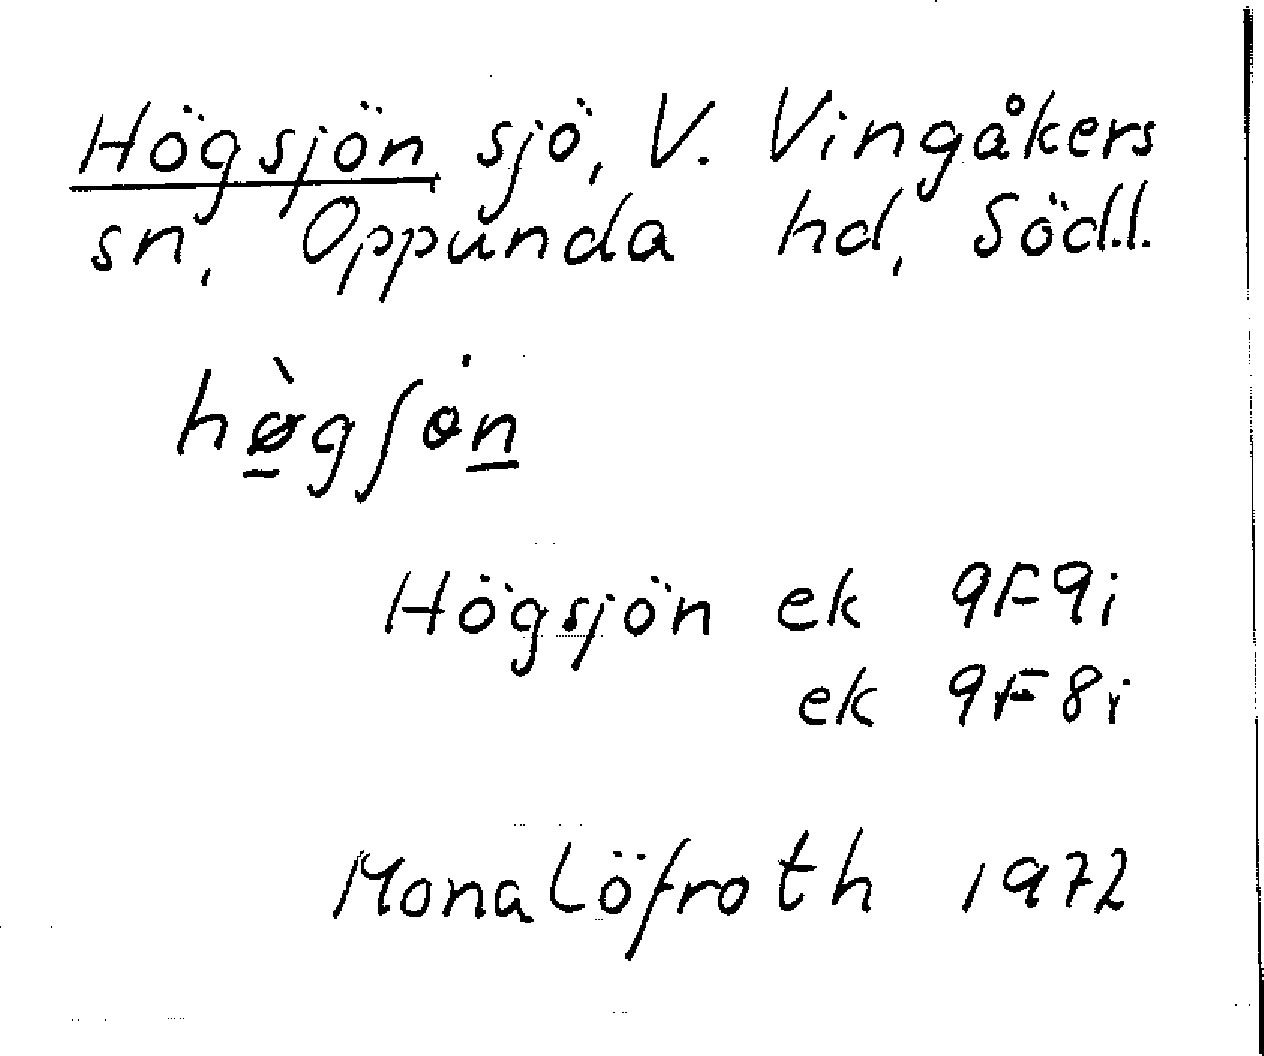 Högsjön sjö, V. Vingåkers
sn, Oppunda hd, Södl.
hø̠̀gʃȯn̠
Högsjön ek 9F9i
ek 9F8i
Mona Löfroth 1972